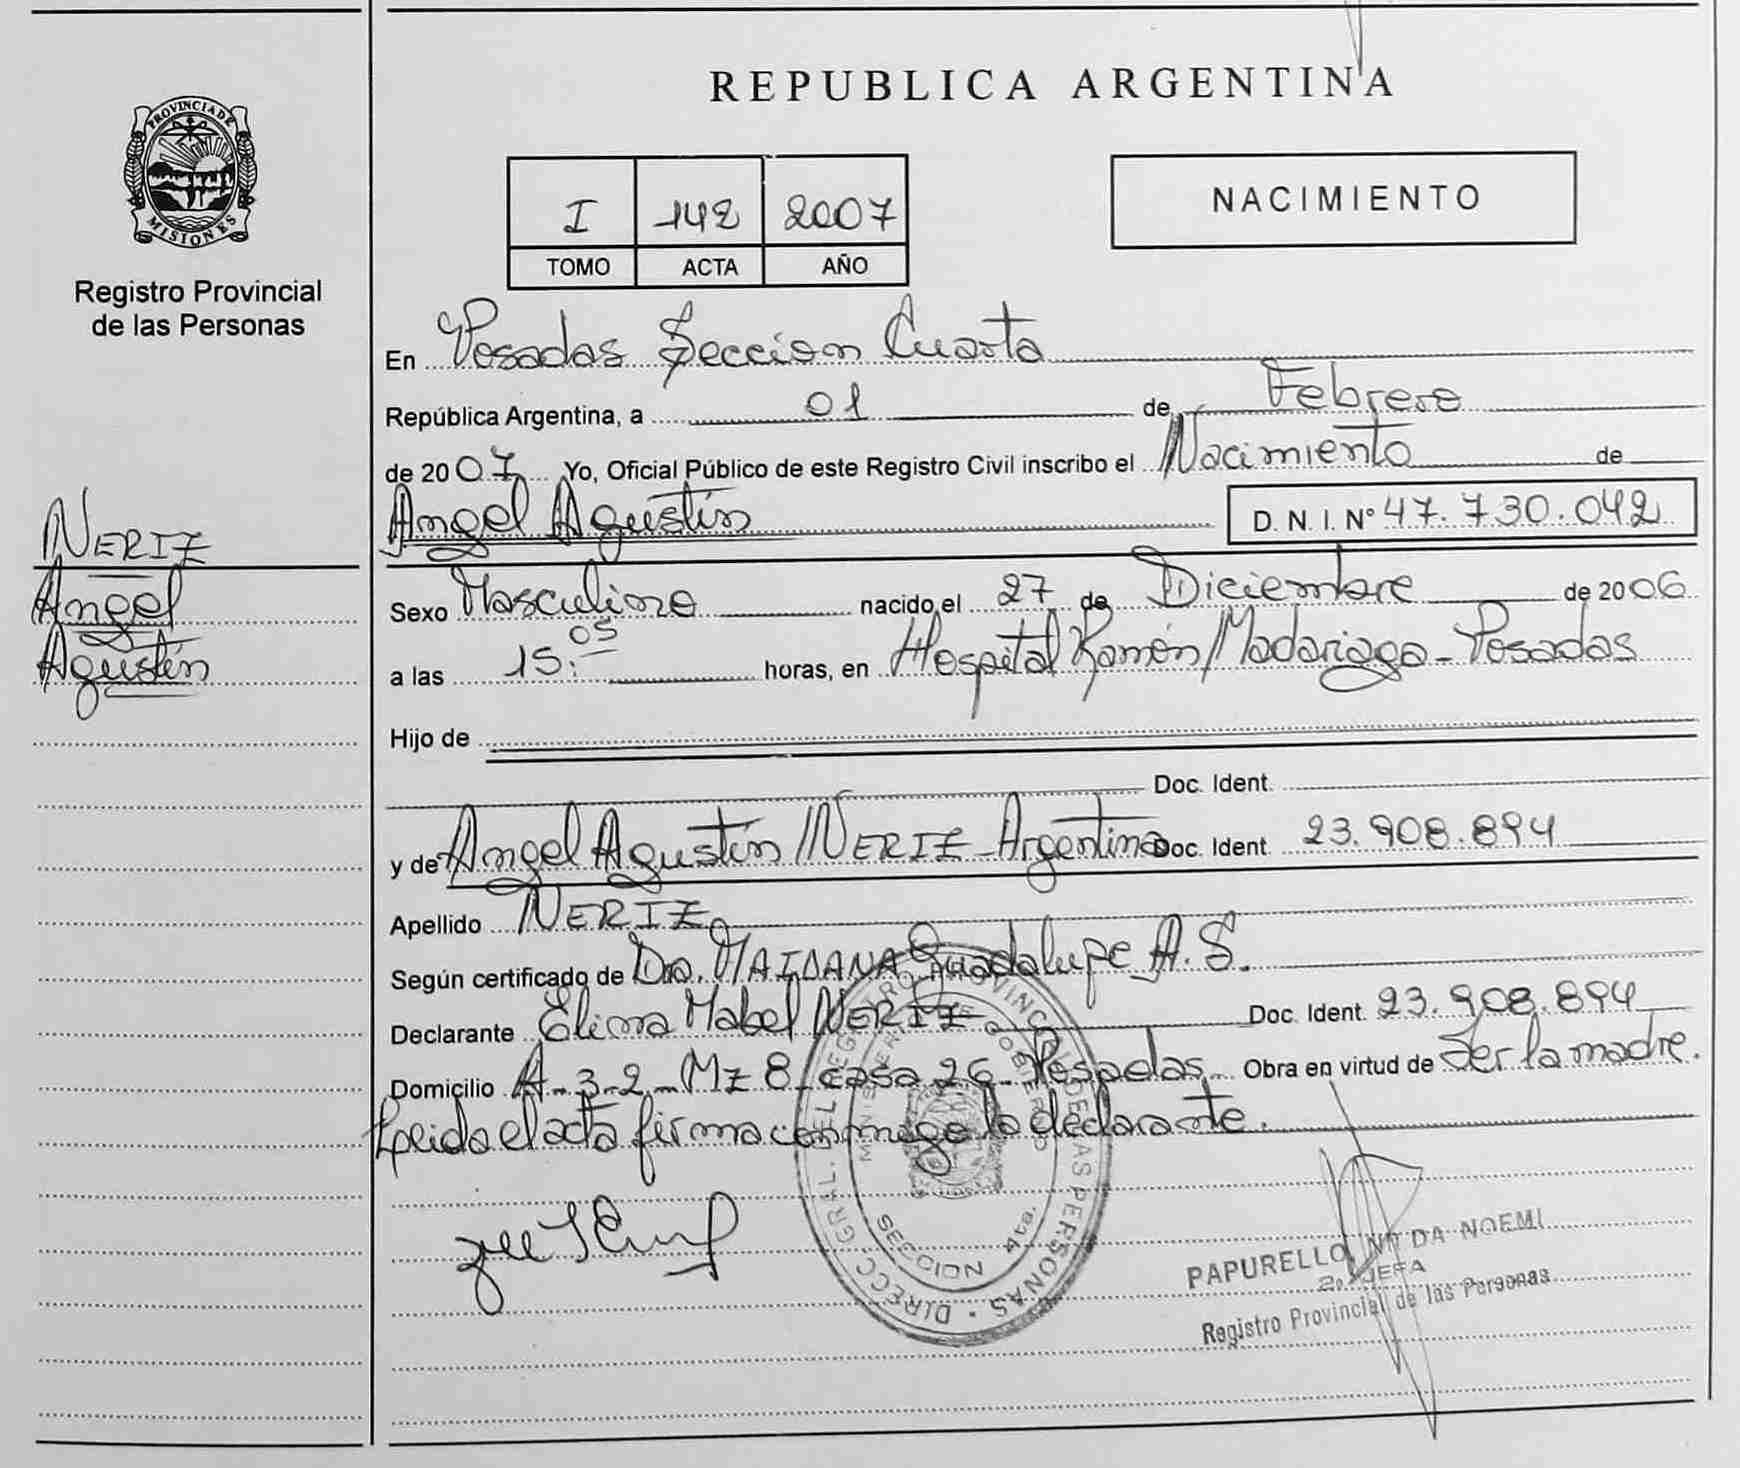 REPUBLICA ARGENTINA
PROVINCIA DE MISIONES
Registro Provincial
de las Personas
I 142 2007
TOMO ACTA AÑO
NACIMIENTO
En Posadas Seccion Cuarta
República Argentina, a 01 de Febrero
de 2007 Yo, Oficial Público de este Registro Civil inscribo el Nacimiento de
Angel Agustín D. N. I. Nº 47.730.042
NERIZ
Angel
Agustín
Sexo Masculino nacido el 27 de Diciembre de 2006
a las 15:05 horas, en Hospital Ramón Madariaga - Posadas
Hijo de
Doc. Ident.
y de Angel Agustín NERIZ - Argentina Doc. Ident. 23.908.894
Apellido NERIZ
Según certificado de Dra. MAIDANA Guadalupe A. S.
Declarante Elima Mabel NERIZ Doc. Ident. 23.908.894
Domicilio A-3-2-Mz 8 casa 26 Posadas Obra en virtud de Ser la madre.
Leida el acta firma conmigo la declarante.
DIRECC. GRAL. DEL REGISTRO PROVINCIAL DE LAS PERSONAS
SECCION 4ta.
PAPURELLO NOEMI
2º JEFA
Registro Provincial de las Personas